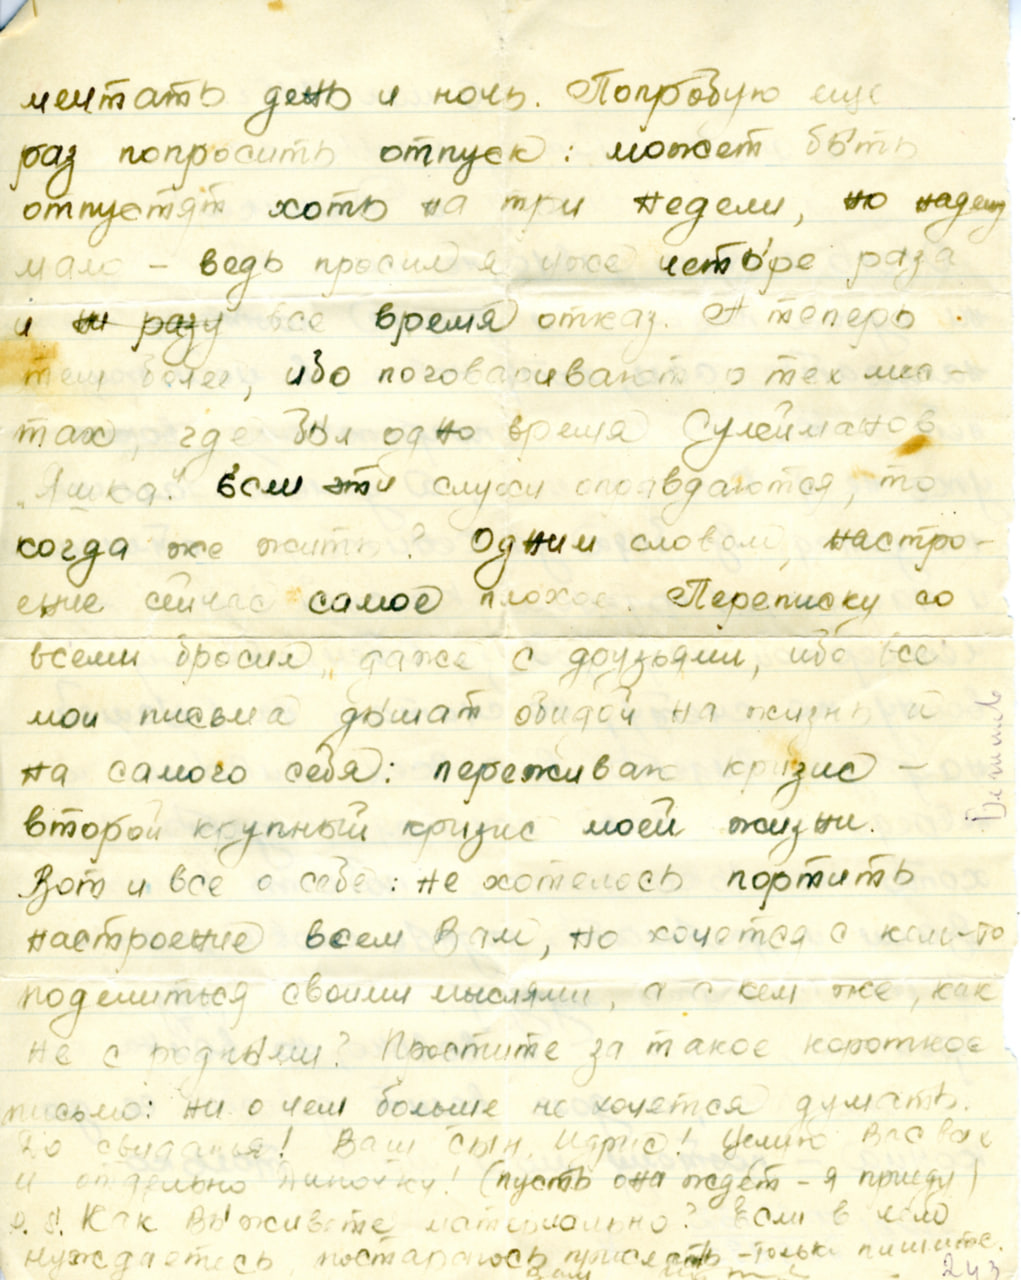 мечтать день и ночь. Попробую еще
раз попросить отпуск: может быть
отпустят хоть на три недели, но надежд
мало – ведь просил я уже четыре раза
и ни разу все время отказ. А теперь
тем более, ибо поговаривают о тех мес-
тах, где был одно время Сулейманов
"Яшка". Если эти слухи оправдаются, то
когда же жить? Одним словом, настро-
ение сейчас самое плохое. Переписку со
всеми бросил, даже с друзьями, ибо все
мои письма дышат обидой на жизнь и
на самого себя: переживаю кризис –
второй крупный кризис моей жизни.
Вот и все о себе: не хотелось портить
настроение всем Вам, но хочется с кем-то
поделиться своими мыслями, а с кем же, как
не с родными? Простите за такое короткое
письмо: ни о чем больше не хочется думать.
До свиданья! Ваш сын Идрис! Целую Вас всех
и отдельно Ниночку! (пусть она ждет – я приеду)
P.S. Как Вы живете материально? Если в чем
нуждаетесь, постараюсь прислать – только пишите.
Вам
243